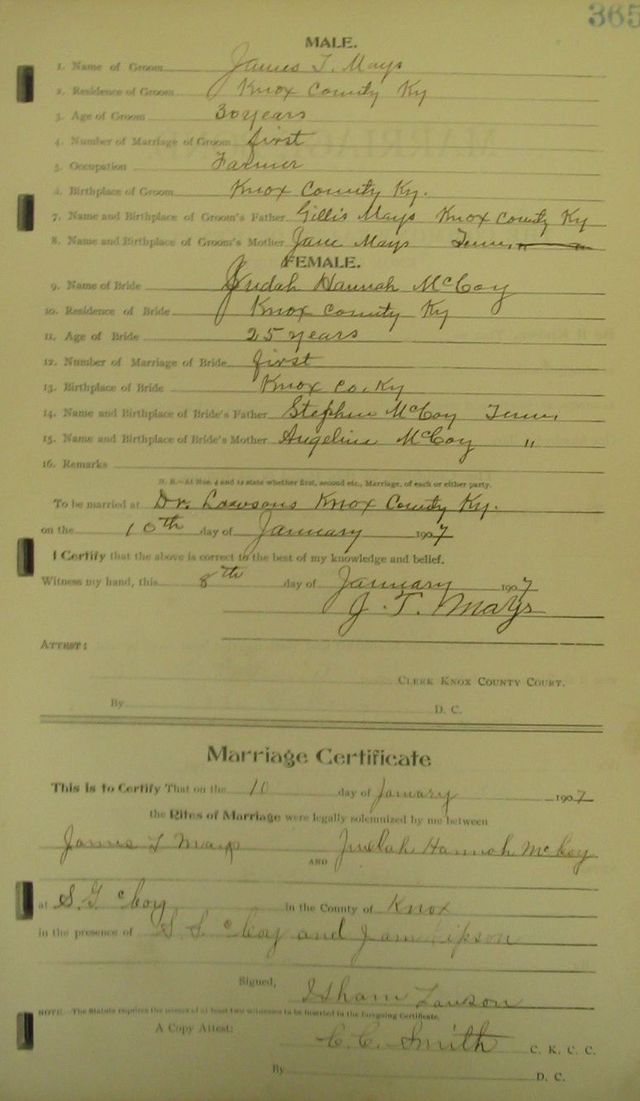 365
MALE.
1. Name of Groom James T. Mays
2. Residence of Groom Knox County Ky
3. Age of Groom 30 years
4. Number of Marriage of Groom first
5. Occupation Farmer
6. Birthplace of Groom Knox County Ky.
7. Name and Birthplace of Groom's Father Gillis Mays Knox County Ky
8. Name and Birthplace of Groom's Mother Jane Mays Tenn,
FEMALE.
9. Name of Bride Judah Hannah McCoy
10. Residence of Bride Knox County Ky
11. Age of Bride 25 years
12. Number of Marriage of Bride first
13. Birthplace of Bride Knox Co. Ky
14. Name and Birthplace of Bride's Father Stephen McCoy Tenn,
15. Name and Birthplace of Bride's Mother Angeline McCoy "
16. Remarks
N. B.—At Nos. 4 and 12 state whether first, second etc., Marriage, of each or either party.
To be married at Dr. Lawsons Knox County Ky.
on the 10th day of January 1907
I Certify that the above is correct to the best of my knowledge and belief.
Witness my hand, this 8th day of January 1907
J. T. Mays
ATTEST:
CLERK KNOX COUNTY COURT.
By D. C.
Marriage Certificate
This is to Certify That on the 10 day of January 1907
the Rites of Marriage were legally solemnized by me between
James T Mays AND Juelah Hannah McCoy
at S. G McCoy in the County of Knox
in the presence of S S McCoy and
Signed, Isham Lawson
NOTE—The Statute requires the names of at least two witnesses to be inserted in the foregoing Certificate.
A Copy Attest: C. C. Smith C. K. C. C.
By D. C.